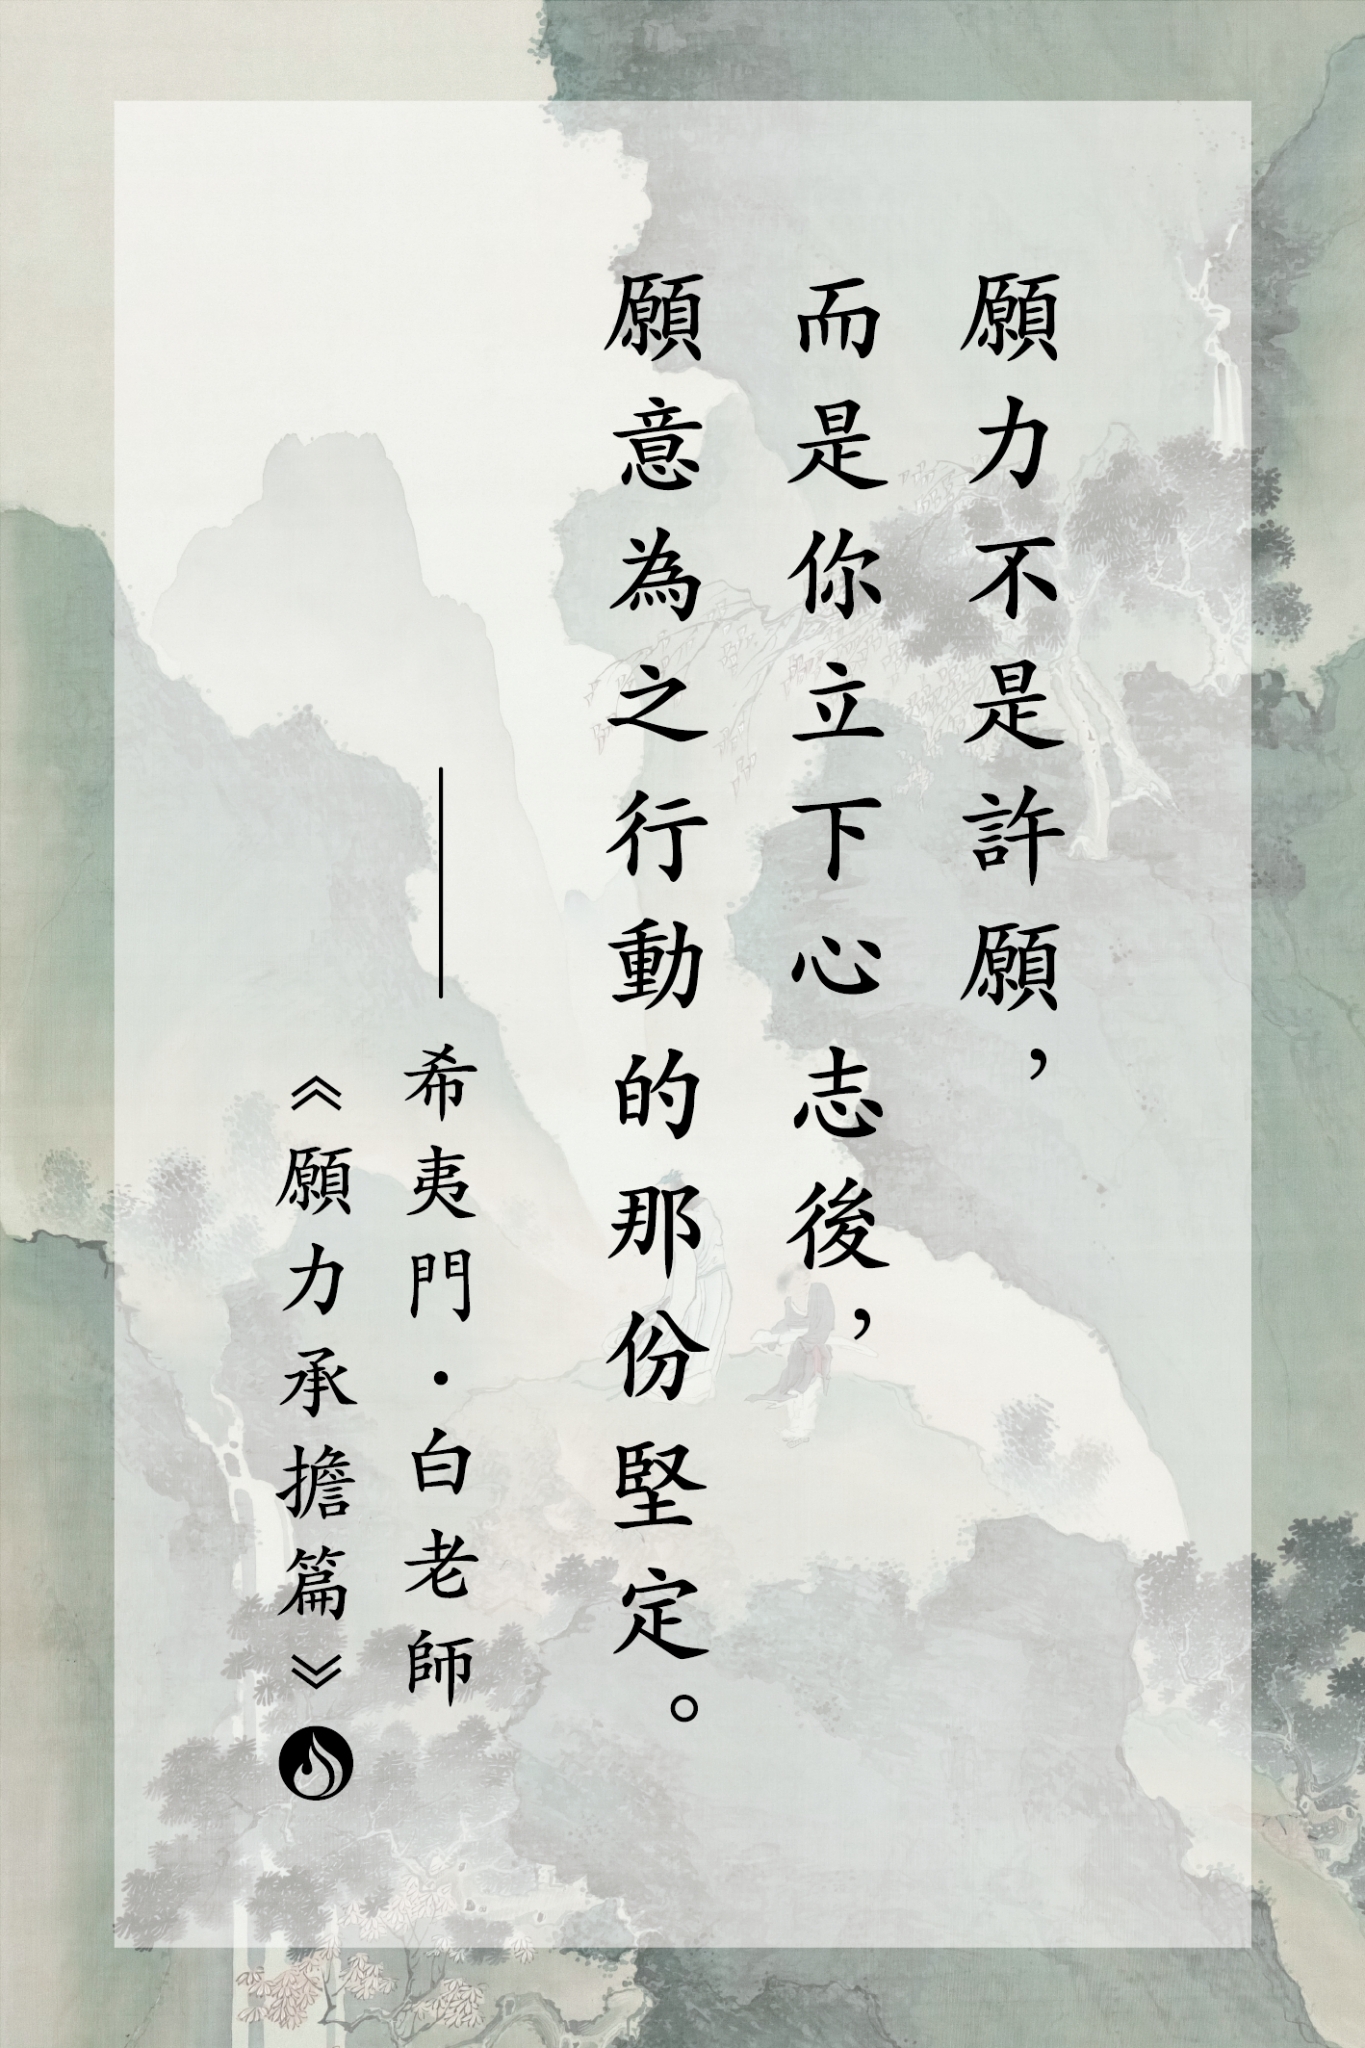 願力不是許願，
而是你立下心志後，
願意為之行動的那份堅定。
——希夷門・白老師
《願力承擔篇》